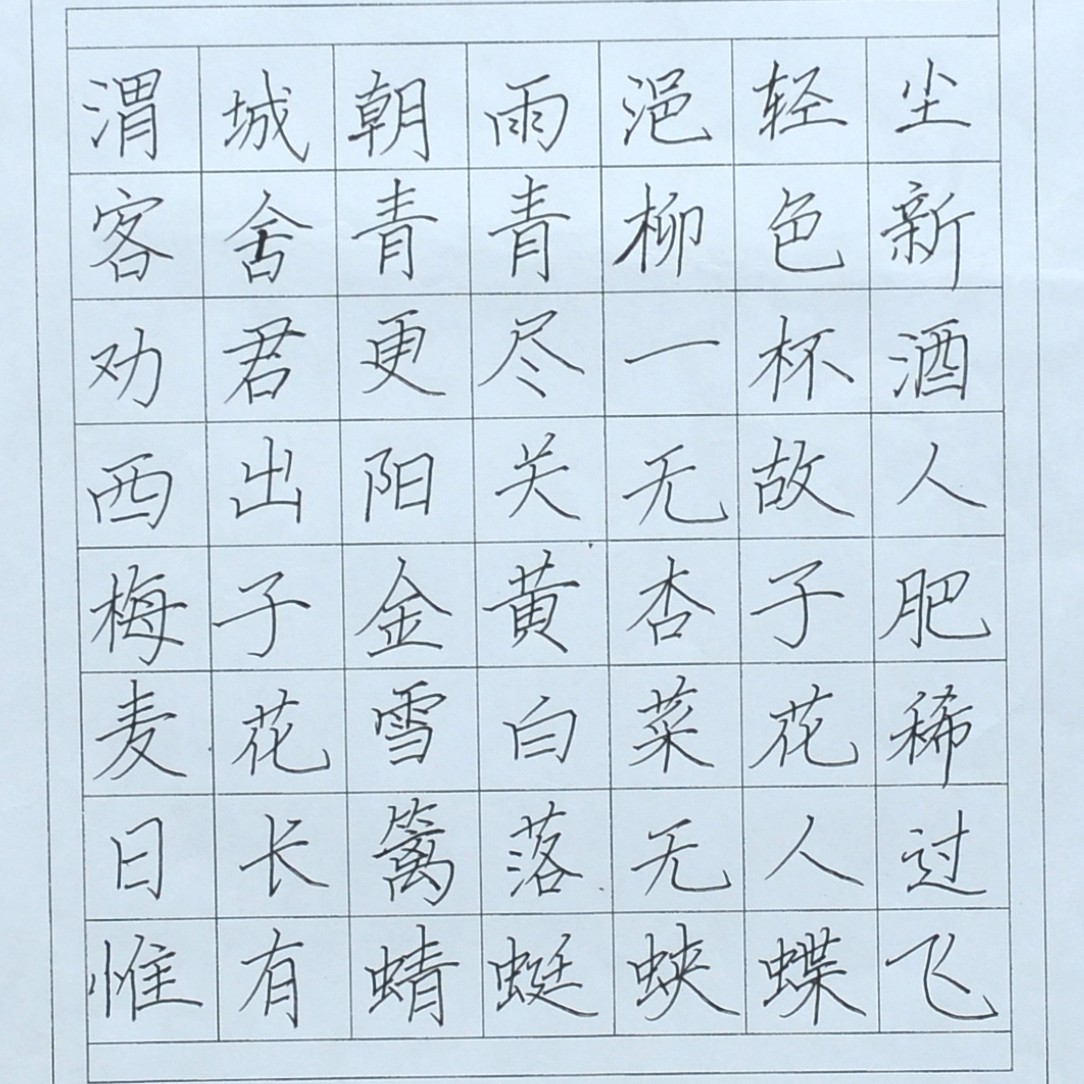 渭城朝雨浥轻尘
客舍青青柳色新
劝君更尽一杯酒
西出阳关无故人
梅子金黄杏子肥
麦花雪白菜花稀
日长篱落无人过
惟有蜻蜓蛱蝶飞